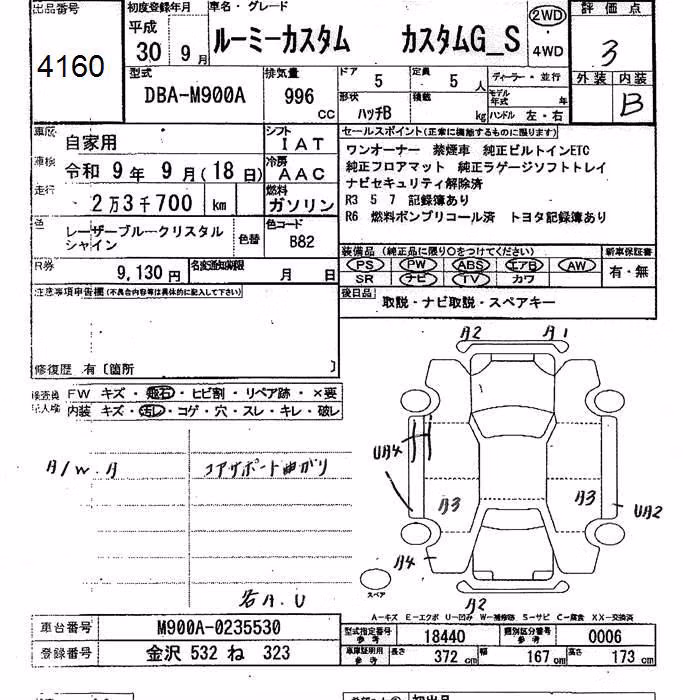 出品番号
4160
初度登録年月
平成
30 9月
車名・グレード
ルーミーカスタム カスタムG_S
2WD
4WD
評価点
3
外装 内装
B
型式
DBA-M900A
排気量
996 cc
ドア
5
定員
5 人
形状
ハッチB
積載
kg
ディーラー・並行
モデル年式 年
ハンドル 左・右
車歴
自家用
シフト
IAT
車検
令和 9年 9月(18日)
冷房
AAC
走行
2万3千700 km
燃料
ガソリン
色
レーザーブルークリスタル
シャイン
色替
色コード
B82
R券
9,130円
名変通知期限
月 日
セールスポイント(正常に機能するものに限ります)
ワンオーナー 禁煙車 純正ビルトインETC
純正フロアマット 純正ラゲージソフトトレイ
ナビセキュリティ解除済
R3 5 7 記録簿あり
R6 燃料ポンプリコール済 トヨタ記録簿あり
装備品(純正品に限り○をつけてください)
新車保証書
PS PW ABS エアB AW
SR ナビ TV カワ
有・無
後日品
取説・ナビ取説・スペアキー
注意事項申告欄(不具合内容等は具体的に記入して下さい)
修復歴 有〔箇所 〕
検査員
記入欄
FW キズ・飛石・ヒビ割・リペア跡・×要
内装 キズ・汚レ・コゲ・穴・スレ・キレ・破レ
A/W.A
コアサポート曲がり
右A.U
A2
A1
UA4
A3
A3
UA2
A4
A2
スペア
A-キズ E-エクボ U-凹み W-補修跡 S-サビ C-腐食 XX-交換済
車台番号
M900A-0235530
登録番号
金沢 532 ね 323
型式指定番号
参考
18440
類別区分番号
参考
0006
車庫証明用
参考
長さ
372 cm
幅
167 cm
高さ
173 cm